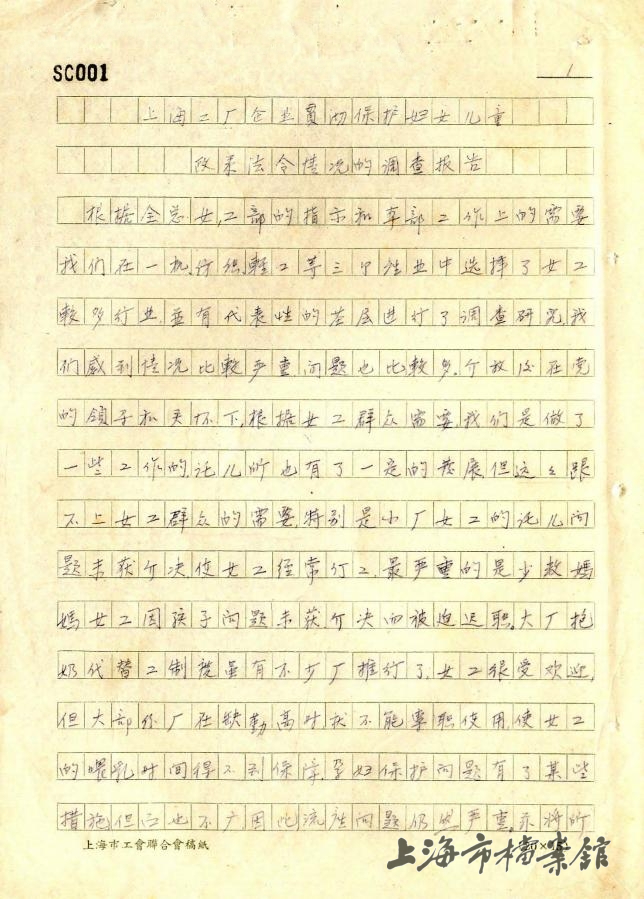 SC001
1
上海工厂企业贯彻保护妇女儿童
政策法令情况的调查报告
根据全总女工部的指示和本部工作上的需要
我们在一机、纺织、輕工等三个产业中选择了女工
較多行业,並有代表性的基层进行了调查研究,我
们感到情况比較严重,问题也比較多。介放后在党
的領导和关怀下,根据女工群众需要,我们是做了
一些工作的,託儿所也有了一定的发展但远远跟
不上女工群众的需要,特别是小厂女工的託儿问
题未获介决,使女工经常行工,最严重的是少数媽
媽女工因孩子问题未获介决而被迫退职。大厂抱
奶代替工制度虽有不少厂推行了,女工很受欢迎,
但大部份厂在缺勤高时就不能專职使用,使女工
的喂乳时间得不到保障。孕妇保护问题有了某些
措施但也不广,因此流产问题仍然严重。示将所
上海市工會聯合會稿紙
上海市檔案館